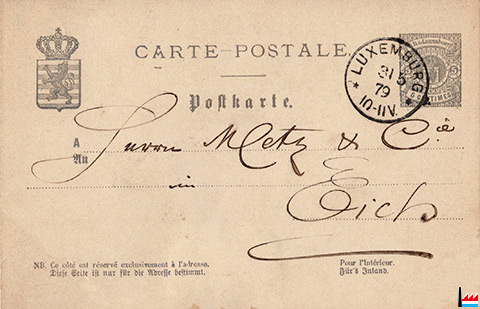 CARTE-POSTALE.
LUXEMBURG
31 5
79
Postkarte.
A
An
Herrn Metz & Cie
in
Eich
NB. Ce côté est réservé exclusivement à l'adresse.
Diese Seite ist nur für die Adresse bestimmt.
Pour l'Intérieur.
Für's Inland.